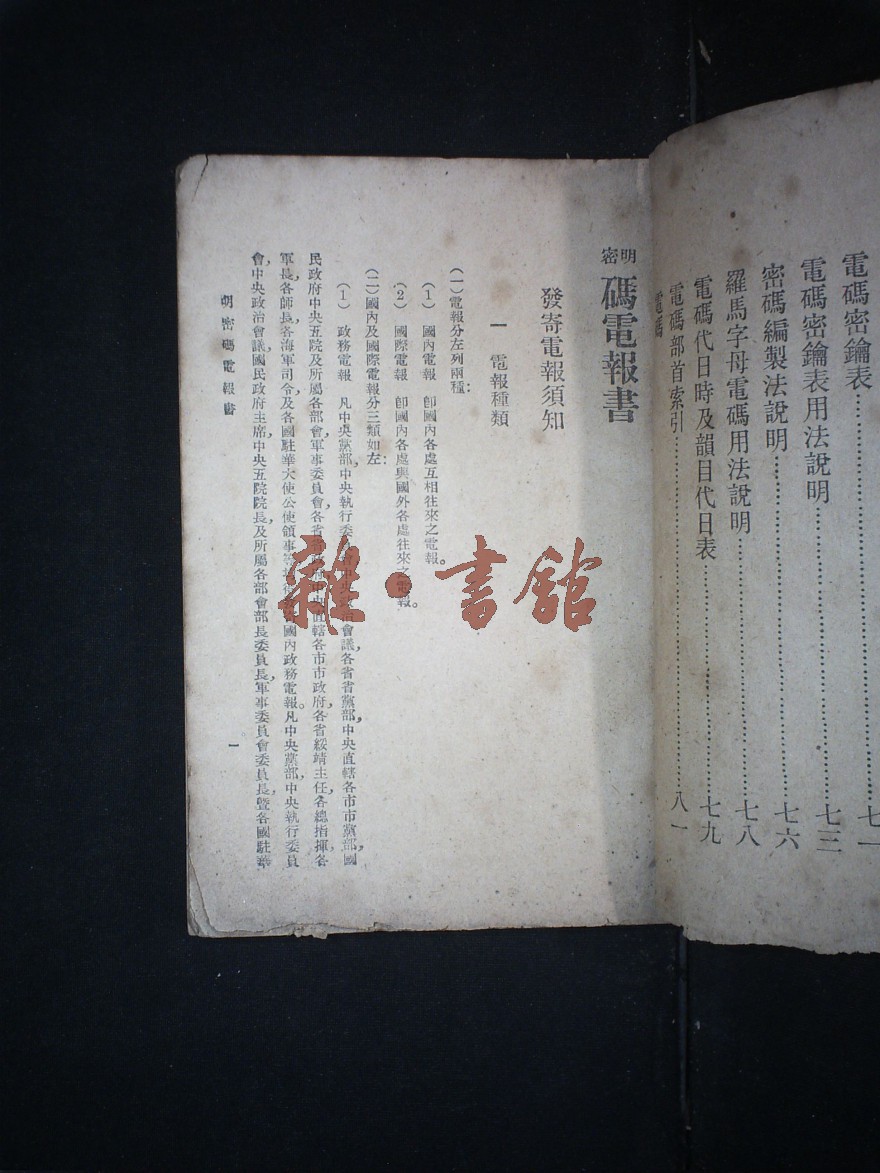 電碼密鑰表……七一
電碼密鑰表用法說明……七三
密碼編製法說明……七六
羅馬字母電碼用法說明……七八
電碼代日時及韻目代日表……七九
電碼部首索引……八一
電碼
明密碼電報書
發寄電報須知
一 電報種類
(一)電報分左列兩種:
(1) 國內電報 卽國內各處互相往來之電報。
(2) 國際電報 卽國內各處與國外各處往來之電報。
(二)國內及國際電報分三類如左:
(1) 政務電報 凡中央黨部,中央執行委 中央政治會議,各省省黨部,中央直轄各市市黨部,國
民政府中央五院及所屬各部會,軍事委員會,各省省 中央直轄各市市政府,各省綏靖主任,各總指揮各
軍長,各師長,各海軍司令,及各國駐華大使公使領事等 國內政務電報。凡中央黨部,中央執行委員
會,中央政治會議,國民政府主席,中央五院院長,及所屬各部會部長委員長,軍事委員會委員長,暨各國駐華
明密碼電報書
一
雜·書館